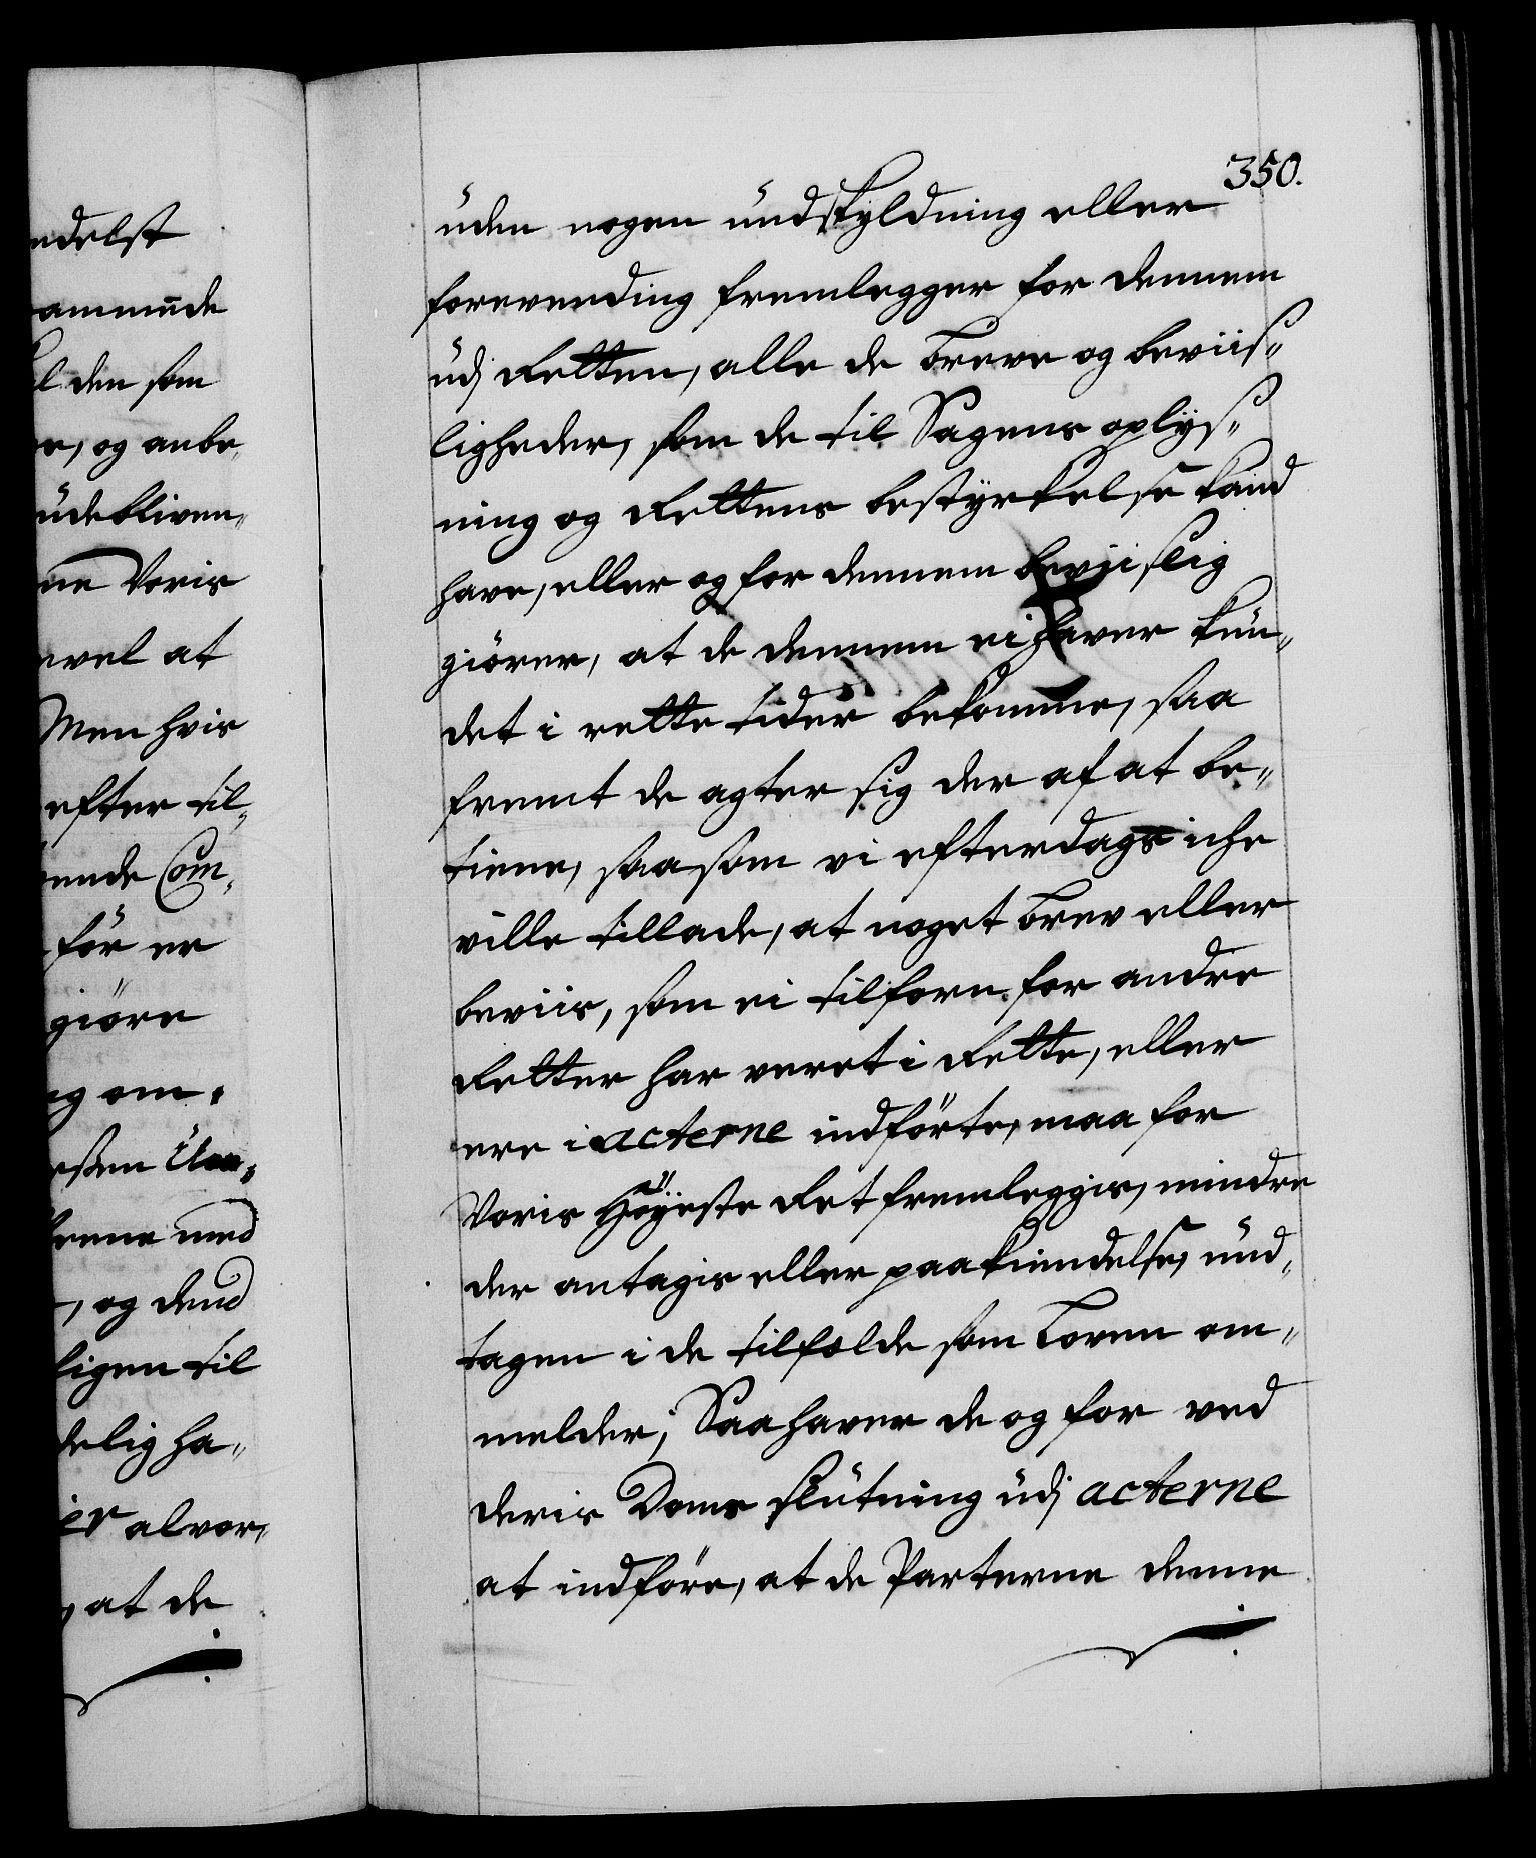 ndelst
ammende
l den som
r, og anbe„
üdebliven„
ne Voris
vel at
Men hvis
efter til„
ende Com„
för er
giöre
g om„
med
, og dend
ligen til
delig ha„
er alvor„
, at de
350.
üden nogen ündskyldning eller
forevending fremlegger for dennem
üdj Retten, alle de breve og beviis„
ligheder, som de til Sagens oplys„
ning og Rettens bestyrkelse kand
have, eller og for dennem beviislig
giörer, at de dennem ei haver kün„
det i rette tider bekomme, saa
fremt de agter sig der af at be„
tiene, saasom vi efterdags iche
ville tillade, at noget brev eller
beviis, som ei tilforn for andre
Retter har veret i Rette, eller
ere i acterne indförte, maa for
Voris Höyeste Ret fremleggis, mindre
der antagis eller paakiendelse, ünd„
tagen i de tilfelde som Loven om„
melder; Saa haver de og for ved
deris Doms slütning üdj acterne
at indföre, at de Parterne denne